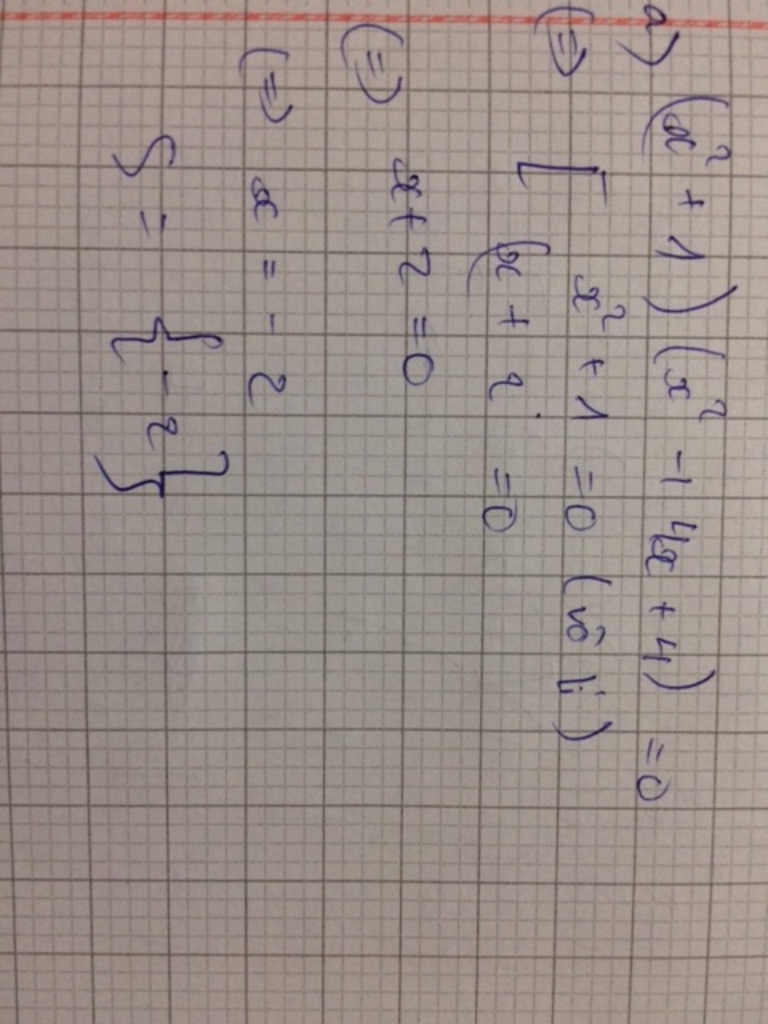 a) (x² + 1) (x² - 4x + 4) = 0
(=) [ x² + 1 = 0 (vô lí)
(x + 2 = 0
(=) x + 2 = 0
(=) x = - 2
S = { - 2 }